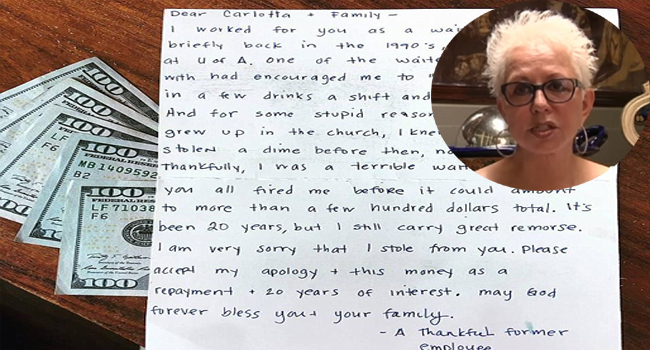 Dear Carlotta + Family -
I worked for you as a wai
briefly back in the 1990's,
at U of A. One of the waite
with had encouraged me to "
in a few drinks a shift and
And for some stupid reaso
grew up in the church, I kne
stolen a dime before then, no
Thankfully, I was a terrible wa
you all fired me before it could amount
to more than a few hundred dollars total. It's
been 20 years, but I still carry great remorse.
I am very sorry that I stole from you. Please
accept my apology + this money as a
repayment + 20 years of interest. may God
forever bless you + your family.
- A Thankful former
employee
100
100
100
FEDERAL RESE
MB 1409592
B2
100
FEDERAL RESER
LF 71038
F6
100